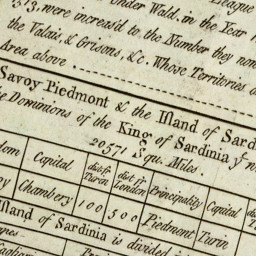 under Wald, in the Year
1513, were increas'd to the Number they now
the Valais, & Grisons, &c. Whose Territories
Area above
Savoy Piedmont & the Island of Sard
Dominions of the King of Sardinia yᵉ
20571 Squ. Miles.
dom Capital dist. fr. Turin dist. fr. London Principality Capital
Chambery 100 500 Piedmont Turin
Island of Sardinia is divided